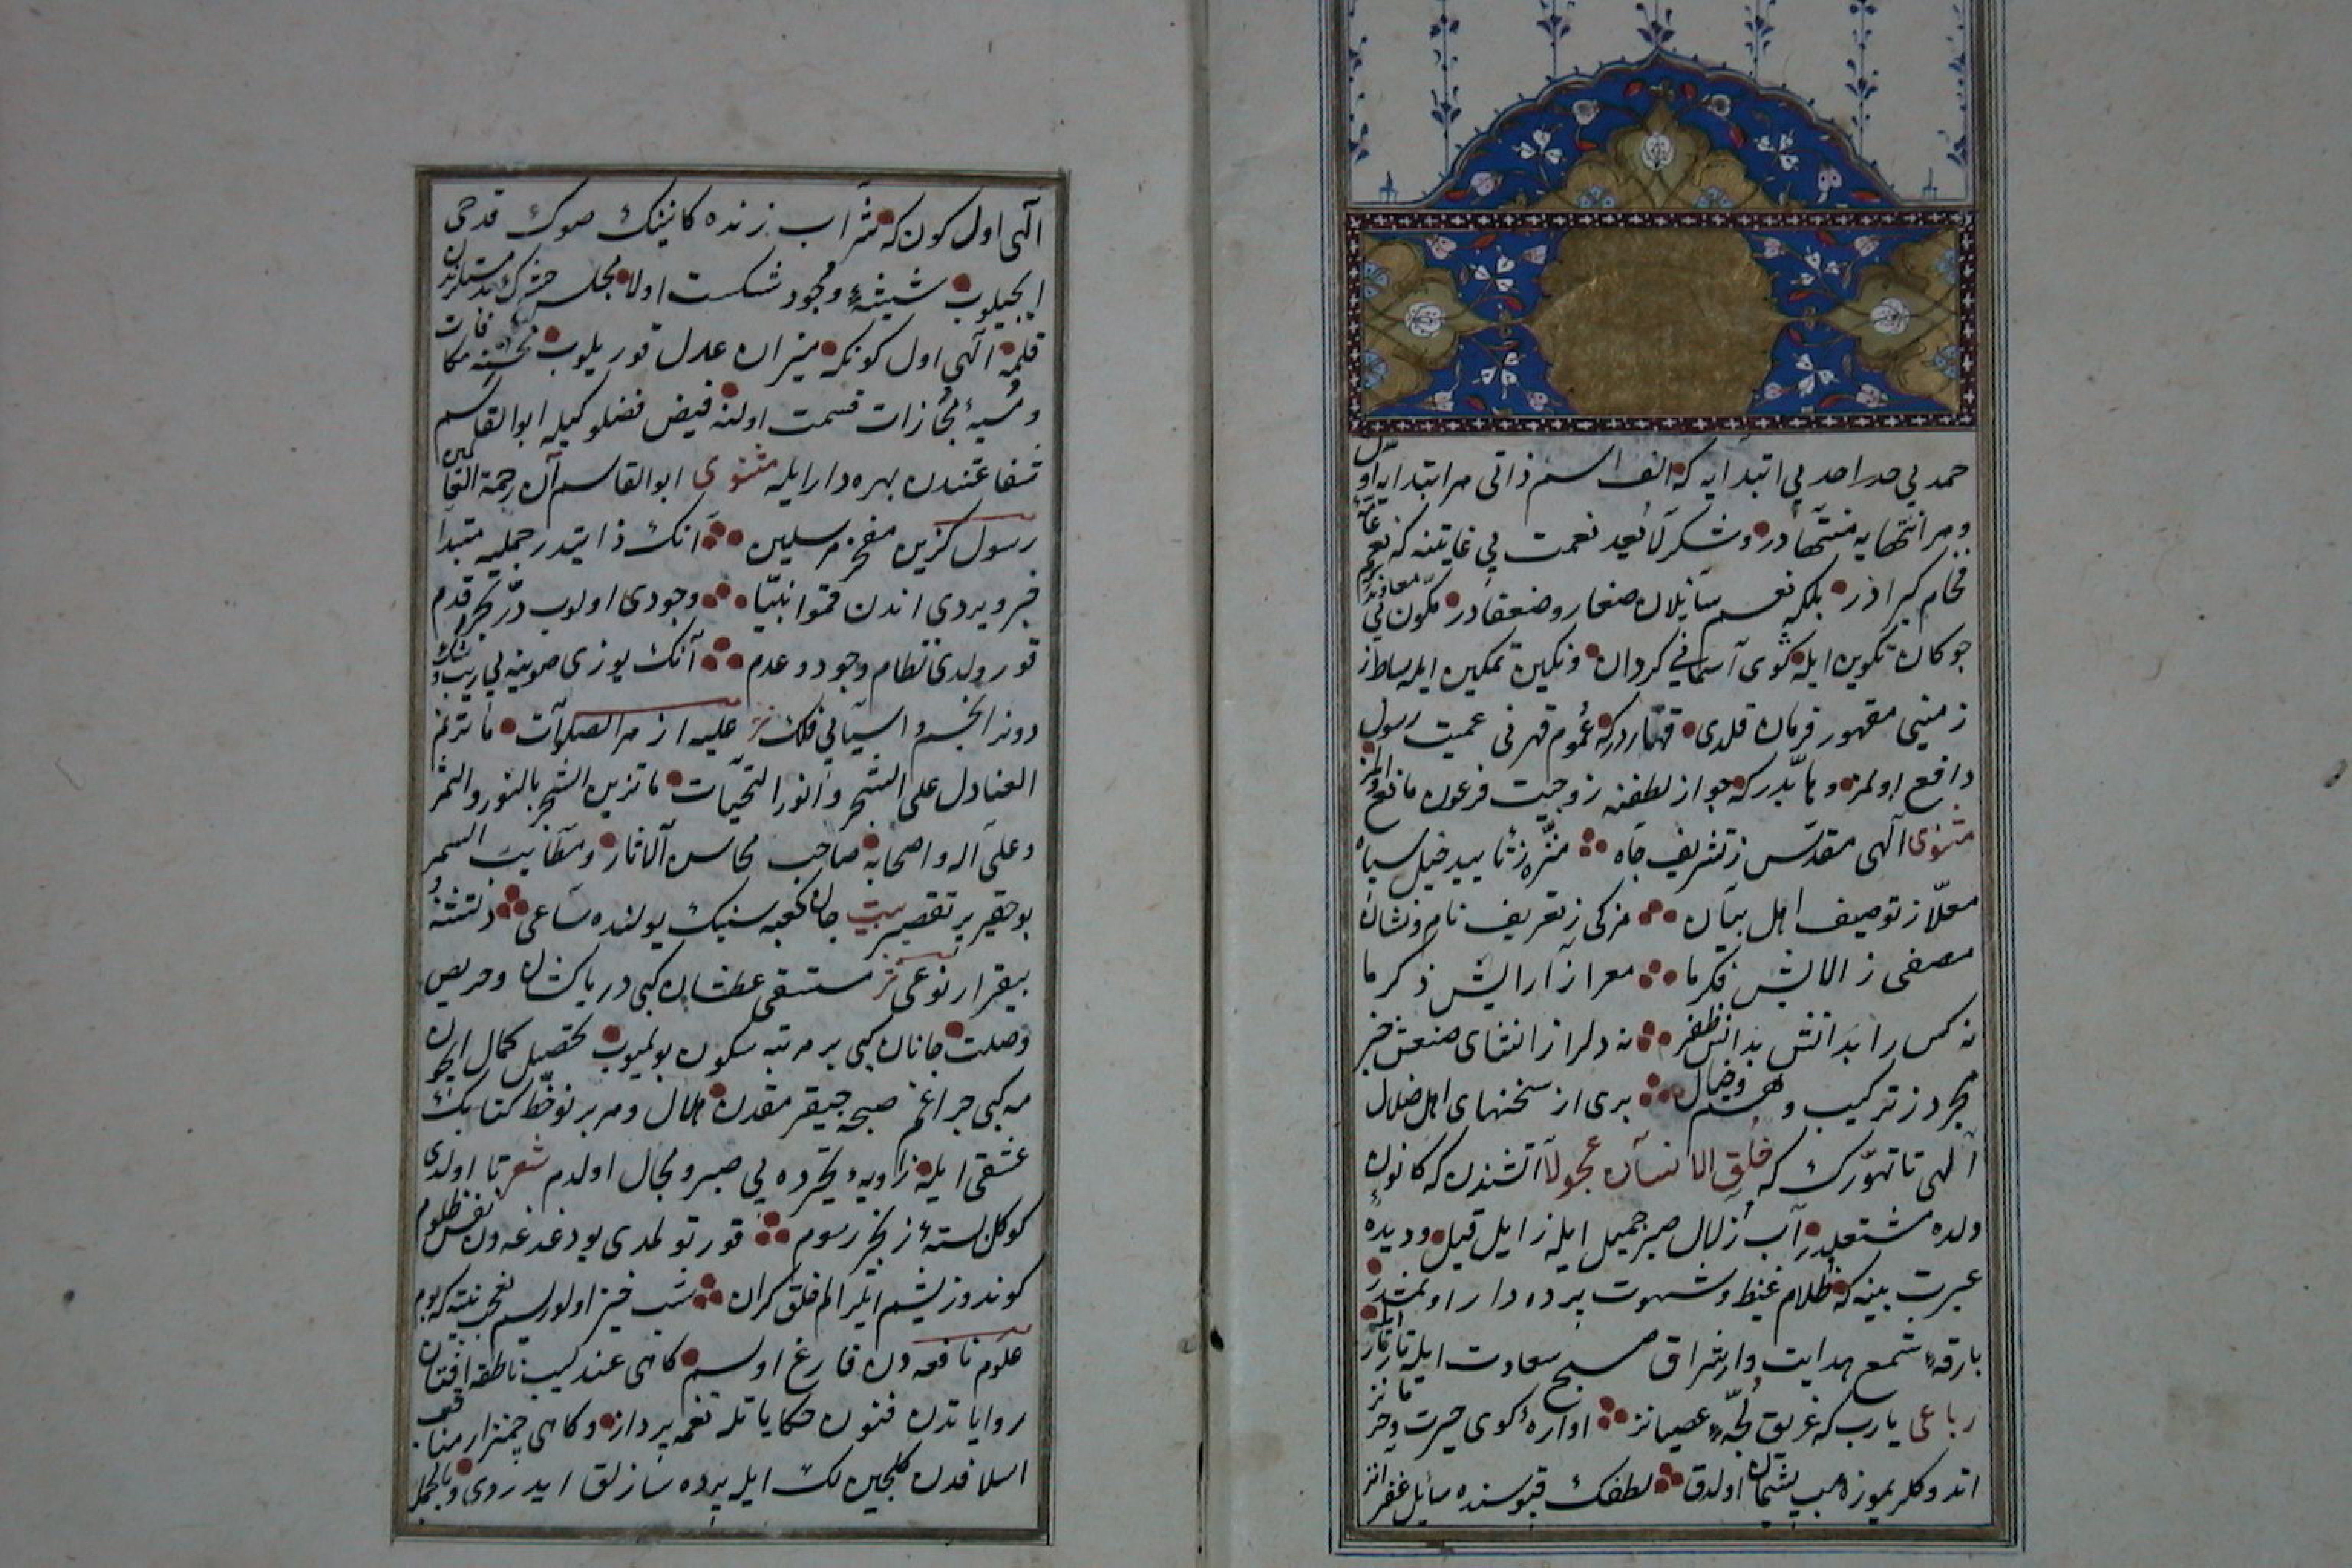 حمد بی حد احد بی ابتدایه که الف اسم ذاتی هر ابتدایه اول
و هر انتهایه منتهادر و شکر لا یعد نعمت بی غایتنه که نعم
بلکه نعم سائلان صغار و ضعفادر مکون بی
چوکان تکوین ایله کوی آسمانی کردان و نکین تمکین ایله بساط
زمینی مقهور فرمان قلدی قهاردر که عموم قهرنی عمیت رسول
دافع اولمز و هابدر که جواز لطفنه زوجیت فرعون مانع
مثنوی الهی مقدس ز تشریف جاه منزه ز تأیید خیل سپاه
معلا ز توصیف اهل بیان مزکی ز تعریف نام و نشان
مصفی ز الایش فکر ما معرا ز آرایش ذکر ما
نه کس را بدانش بذاتش ظفر نه دلرا ز انشای صنعش خبر
مجرد ز ترکیب وهم و خیال بری از سخنهای اهل ضلال
الهی تا تهورک که خلق الانسان عجولا آتشندن که کانون
ولده مشتعلدر آب زلال صبر جمیل ایله زایل قیل و دیده
عبرت بینه که ظلام غیظ و شهوت پرده دار اولمشدر
بارقه شمع هدایت و اشراق صبح سعادت ایله
رباعی یارب که غریق لجه عصیانز اواره کوی حسرت و حرمانز
اتدوکلریموزه هپ پشیمان اولدق لطفک قپوسنده سایل غفرانز
الهی اول کون که شراب زنده کانینک صوک قدحی
ایچیلوب شیشه وجود شکست اولا مجلس حشرک
قلمه الهی اول کونکه میزان عدل قوریلوب محسنه مکافات
و مسیئه مجازات قسمت اولنه فیض فضلوکیله ابو القاسم
شفاعتندن بهره دار ایله مثنوی ابو القاسم آن رحمة العالمین
رسول کزین مفخر مرسلین آنک ذاتیدر جملیه مبتدا
خبر ویردی اندن قموا نبیا وجودی اولوب در بحر قدم
قورولدی نظام وجود و عدم آنک یوزی صوینه بی ریب و شک
دونر انجم و اسیای فلک نثر علیه ازهر الصلوات ما ترنم
العنادل علی الشجر و انور التحیات ما تزین الشجر بالنور و الثمر
و علی آله و اصحابه صاحب محاسن الاثار و مطایب السمر
بو حقیر پر تقصیر بیت جان کعبه سنیک یولنده ساعی دلتشنه و
بیقرار نوعی نثر مستسقی عطشان کبی دریاکشان و حریص
وصلت جانان کبی بر مرتبه سکون بولمیوب تحصیل کمال ایچون
مه کبی چراغم صبحه چیقر مقدن هلال و مهر بر نوخط کتابک
عشقی ایله زاویه حجرده بی صبر و مجال اولدم شعر تا اولدی
کوکل بسته زنجیر رسوم قورتولمدی بو دغدغه دن نفس ظلوم
کوندوز ایشیم ایلر الم خلق کران شب خیز اولورسم نه عجب نیته که بوم
علوم نافعه دن فارغ اولسم کاهی عندلیب ناطقه افتان
روایاتدن فنون حکایاتله نغمه پرداز و کاهی چمنزار مناقب
اسلافدن کلچین لک ایله پرده سازلق ایدردی و بالجمله